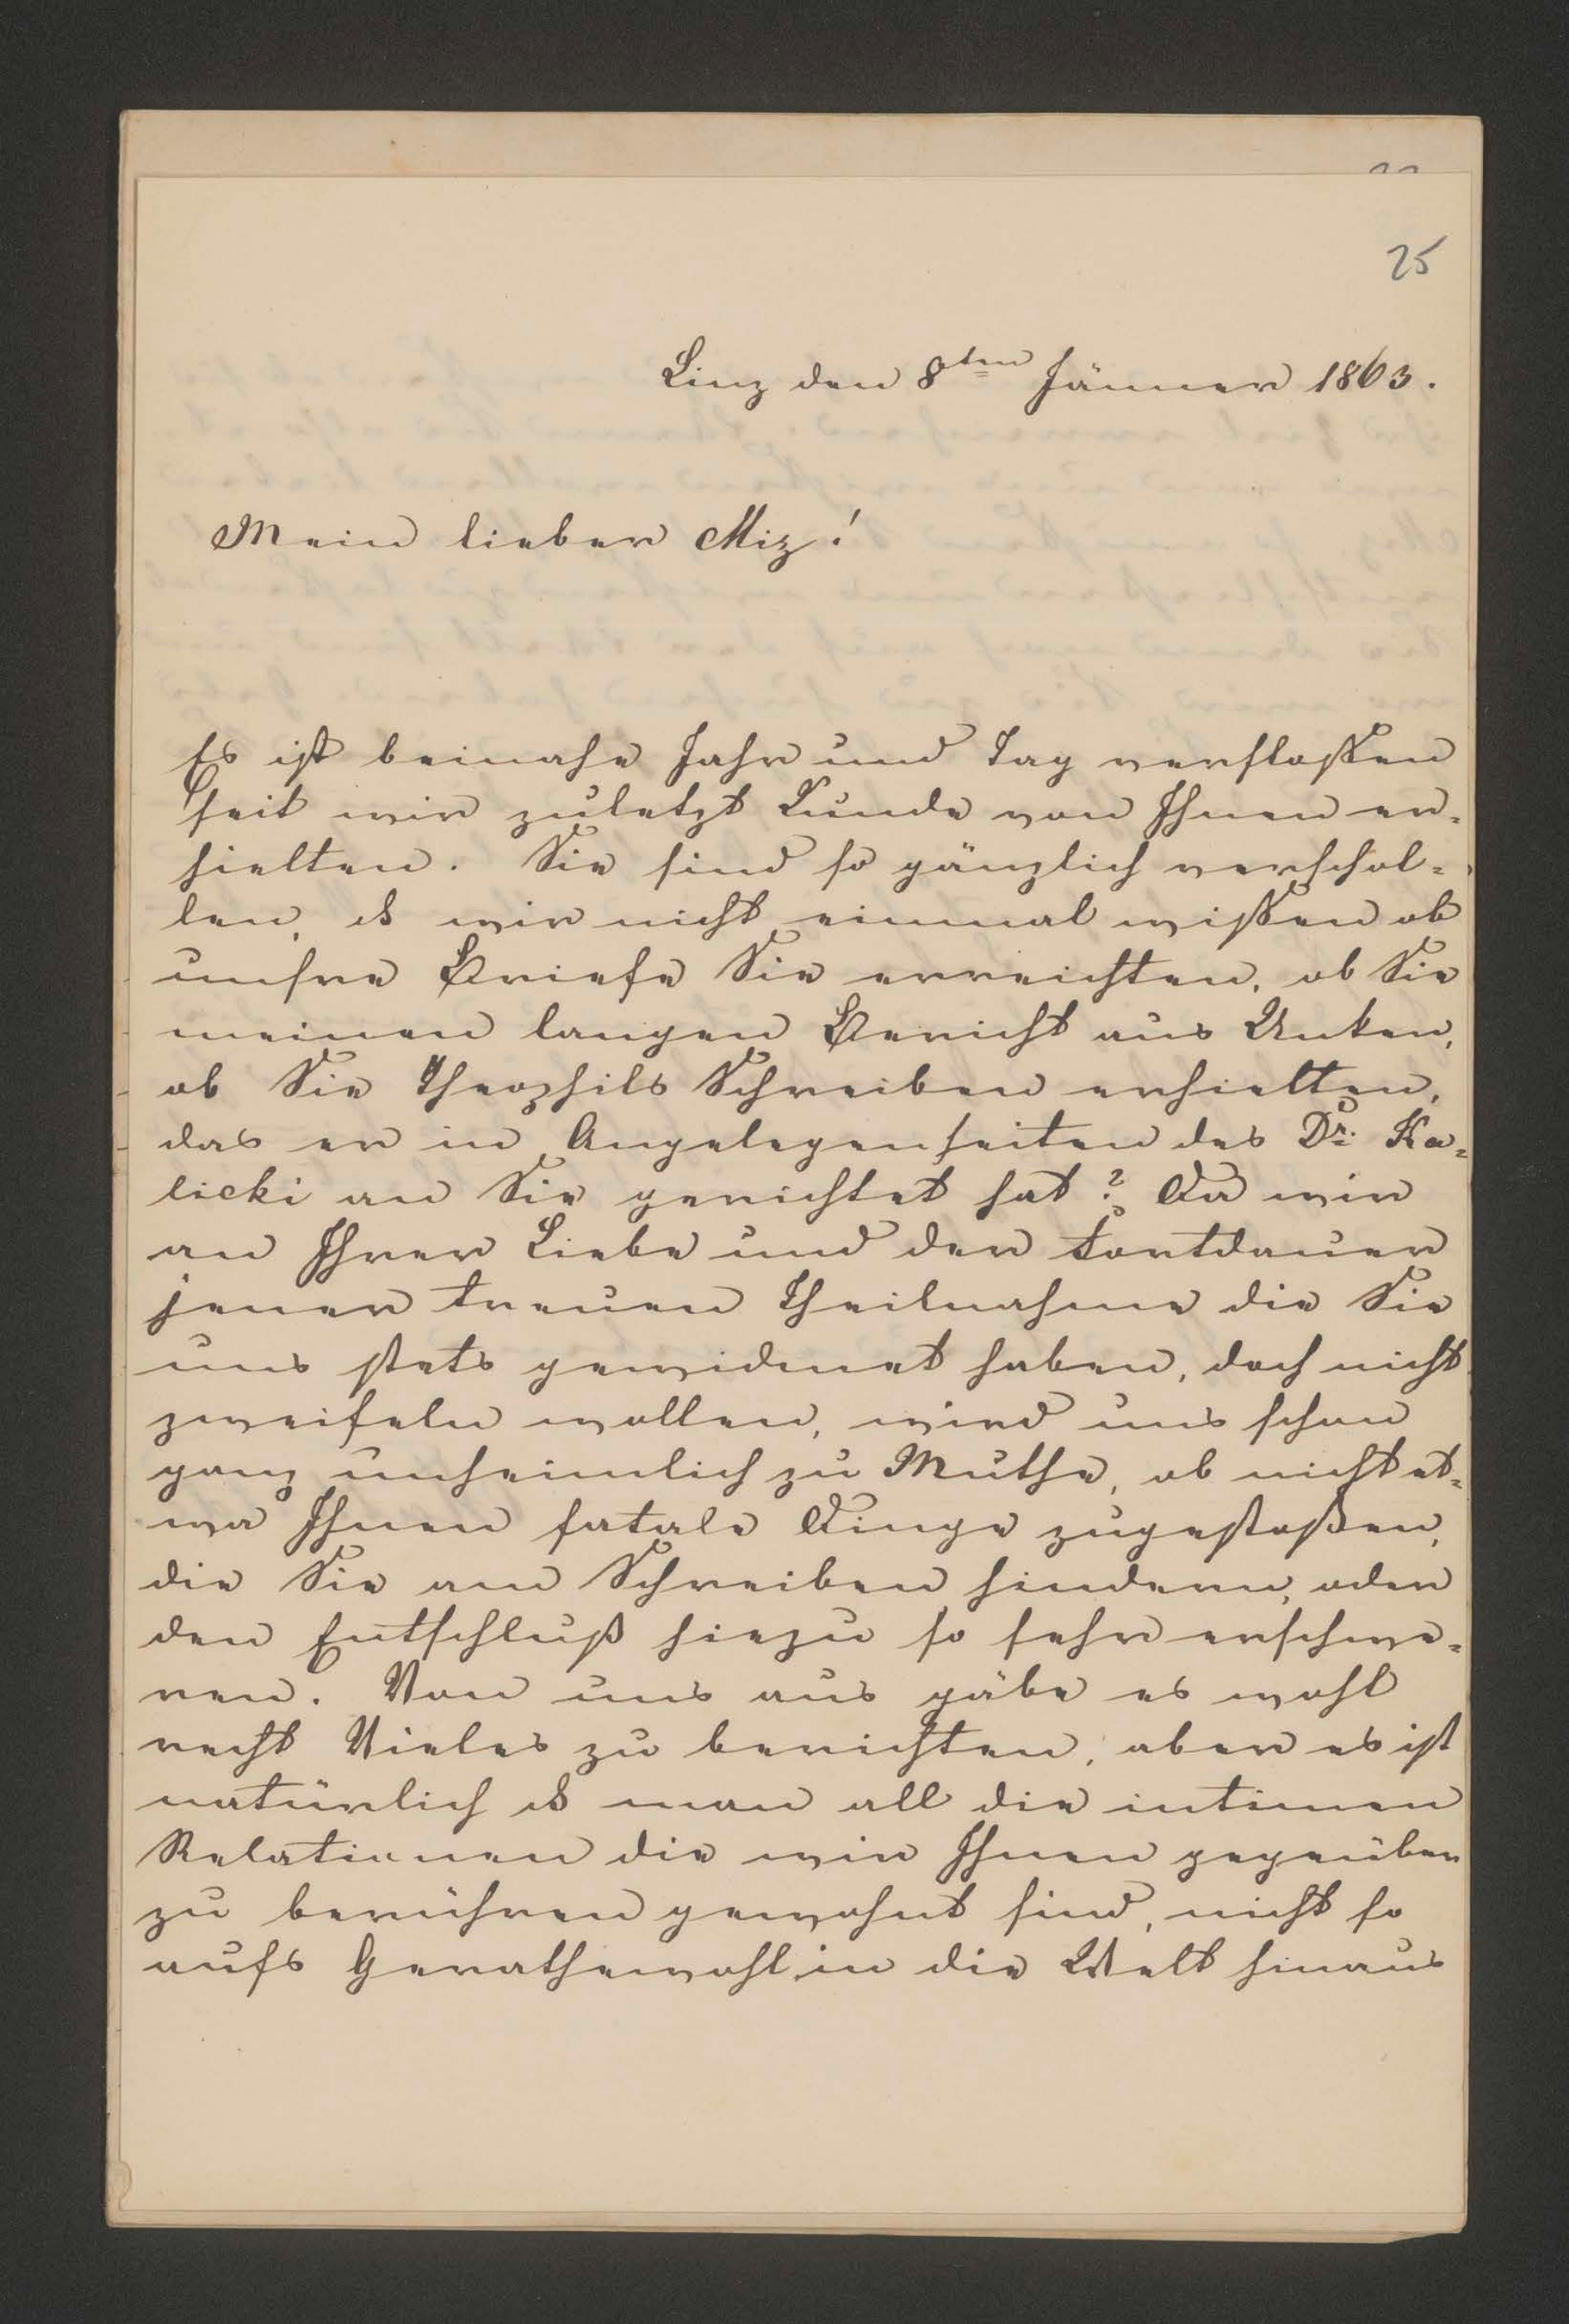 25
Linz den 8ten Jänner 1863.
Mein lieber Miz!
Es ist beinahe Jahr und Tag verflossen
seit wir zuletzt Kunde von Ihnen er=
hielten. Sie sind so gänzlich verschol=
len, ds wir nicht einmal wissen ob
unsre Briefe Sie erreichten, ob Sie
meinen langen Bericht aus Unken,
ob Sie Theophils Schreiben erhielten,
das er in Angelegenheiten des Dr. Ka=
licki an Sie gerichtet hat? Da wir
an Ihrer Liebe und der Fortdauer
jener treuen Theilnahme die Sie
uns stets gewidmet haben, doch nicht
zweifeln wollen, wird uns schon
ganz unheimlich zu Muthe, ob nicht et=
wa Ihnen fatale Dinge zugestoßen,
die Sie am Schreiben hindern, oder
den Entschluß hiezu so sehr erschwe=
ren. Von uns aus gäbe es wohl
recht Vieles zu berichten, aber es ist
natürlich ds man all die intimen
Relationen die wir Ihnen gegenüber
zu berühren gewohnt sind, nicht so
aufs Gerathewohl in die Welt hinaus